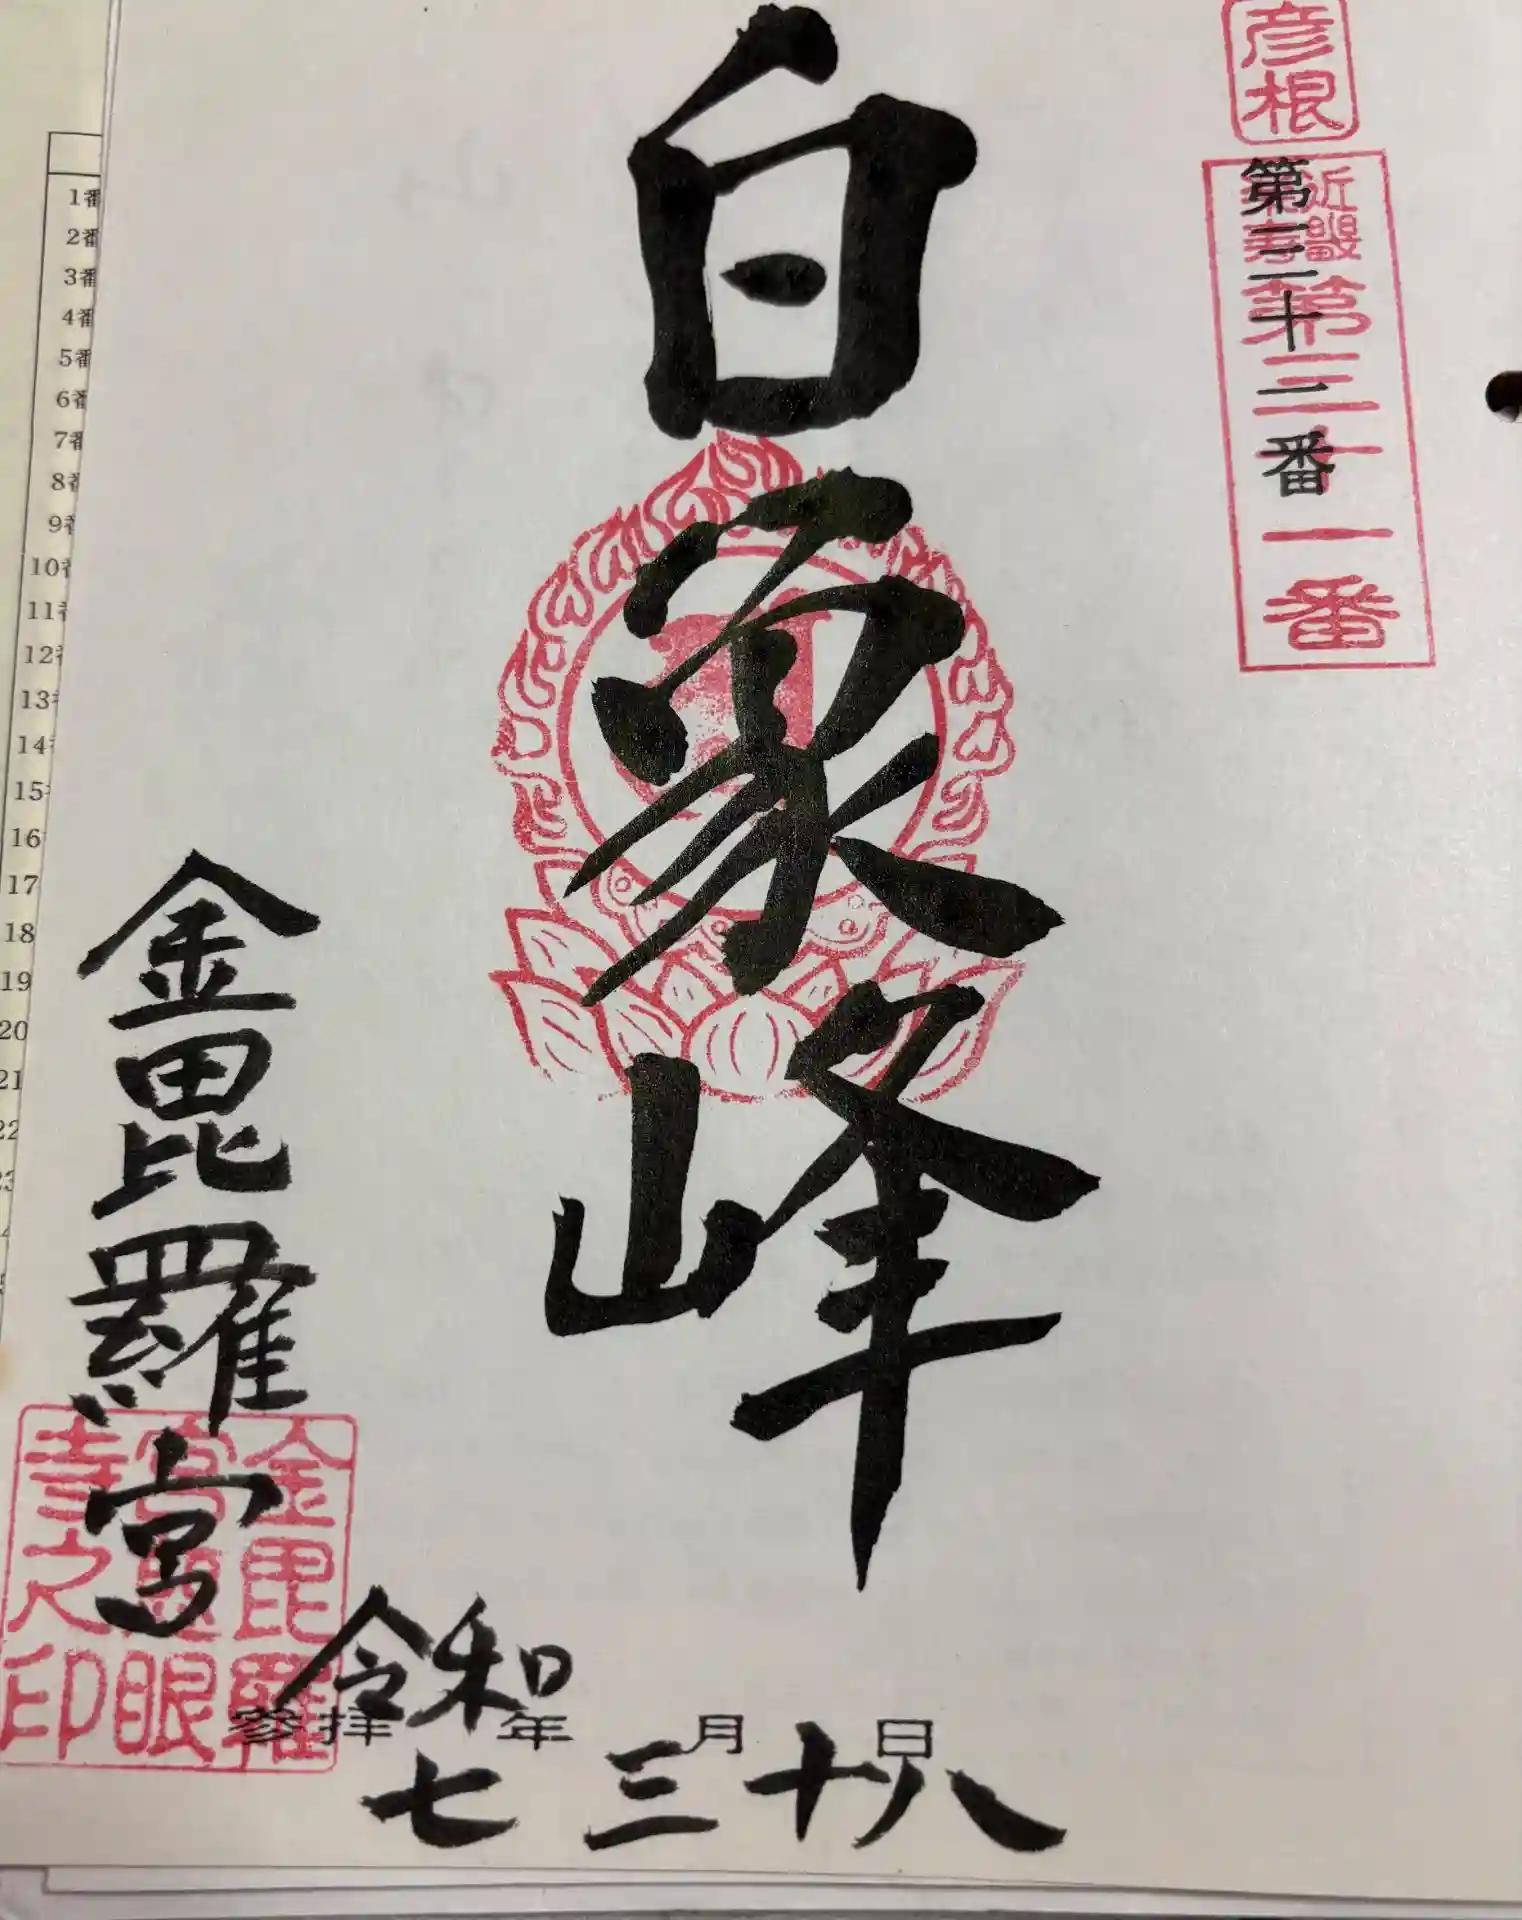 彦根
近畿
第三十一番
第三十二番
白象峰
金毘羅宮
金毘羅
宮慈眼
寺之印
令和
参拝 年 月 日
七 三 十八
1番
2番
3番
4番
5番
6番
7番
8番
9番
10番
11番
12番
13番
14番
15
16
17
18
19
20
21
22
23